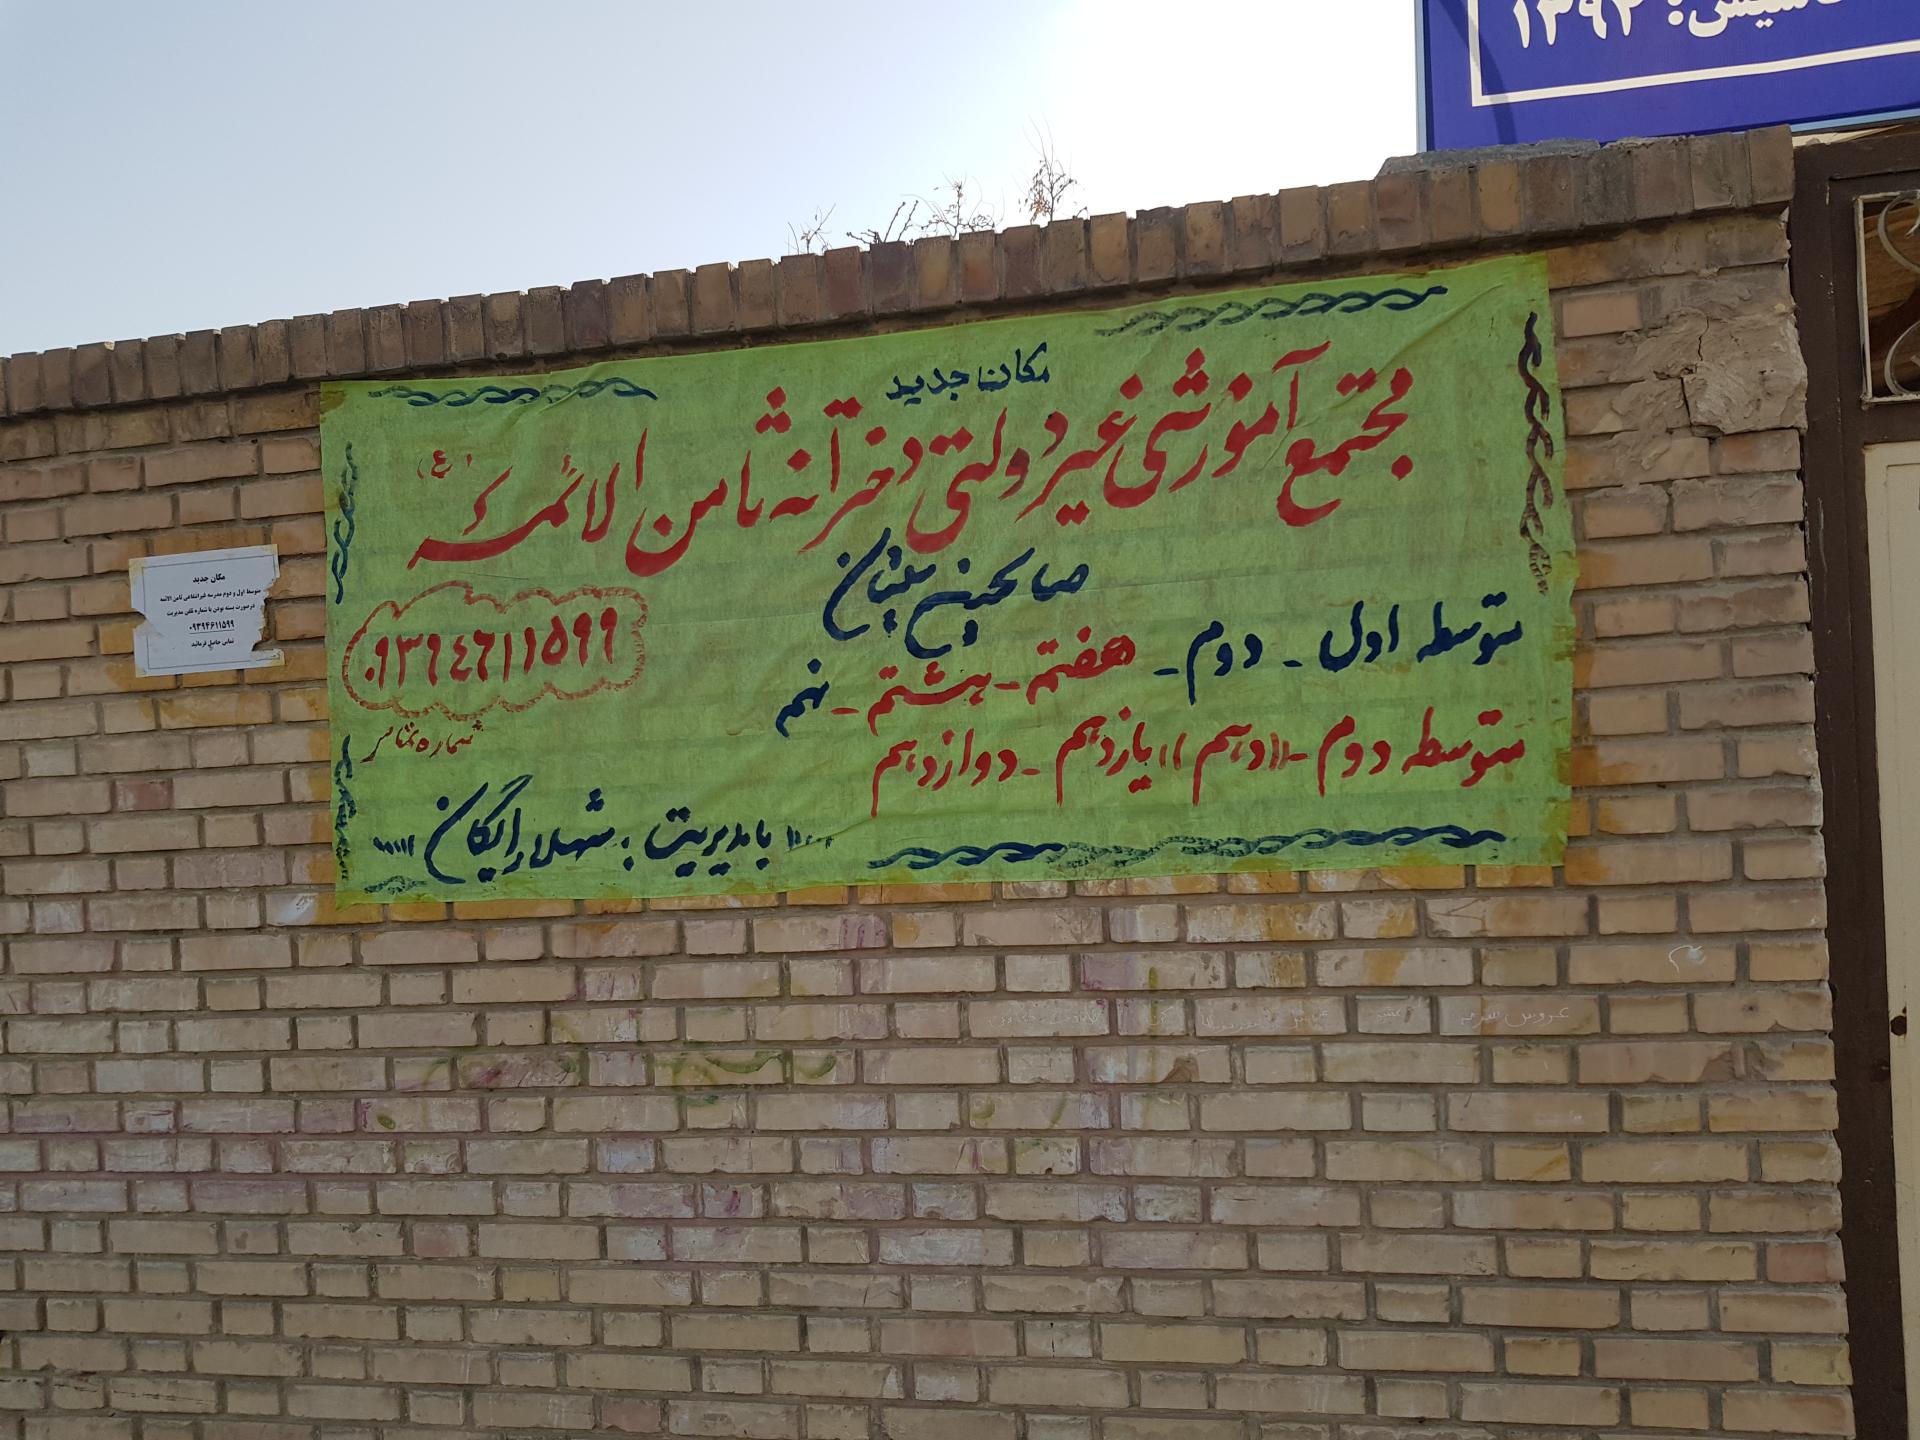 تاسیس: ۱۳۹۲
مکان جدید
مجتمع آموزشی غیر دولتی دخترانه ثامن الائمه (ع)
صالحین
متوسطه اول - دوم - هفتم - هشتم - نهم
متوسطه دوم - ((دهم)) یازدهم - دوازدهم
۰۹۳۹۴۶۱۱۵۹۹
شماره تماس
با مدیریت: شهلا رایگان
مکان جدید
متوسط اول و دوم مدرسه غیرانتفاعی ثامن الائمه
درصورت بسته بودن با شماره تلفن مدیریت
۰۹۳۹۴۶۱۱۵۹۹
تماس حاصل فرمائید